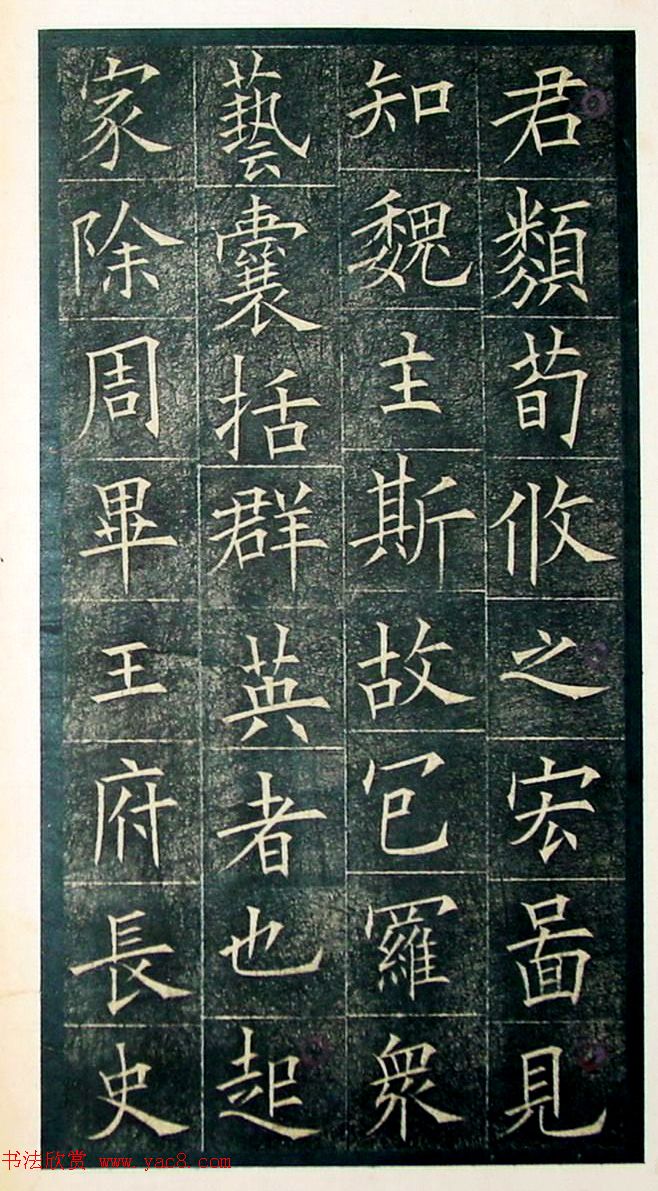 君類荀攸之宏啚見
知魏主斯故㝉羅衆
藝囊括群英者也起
家除周畢王府長史
书法欣赏 www.yac8.com